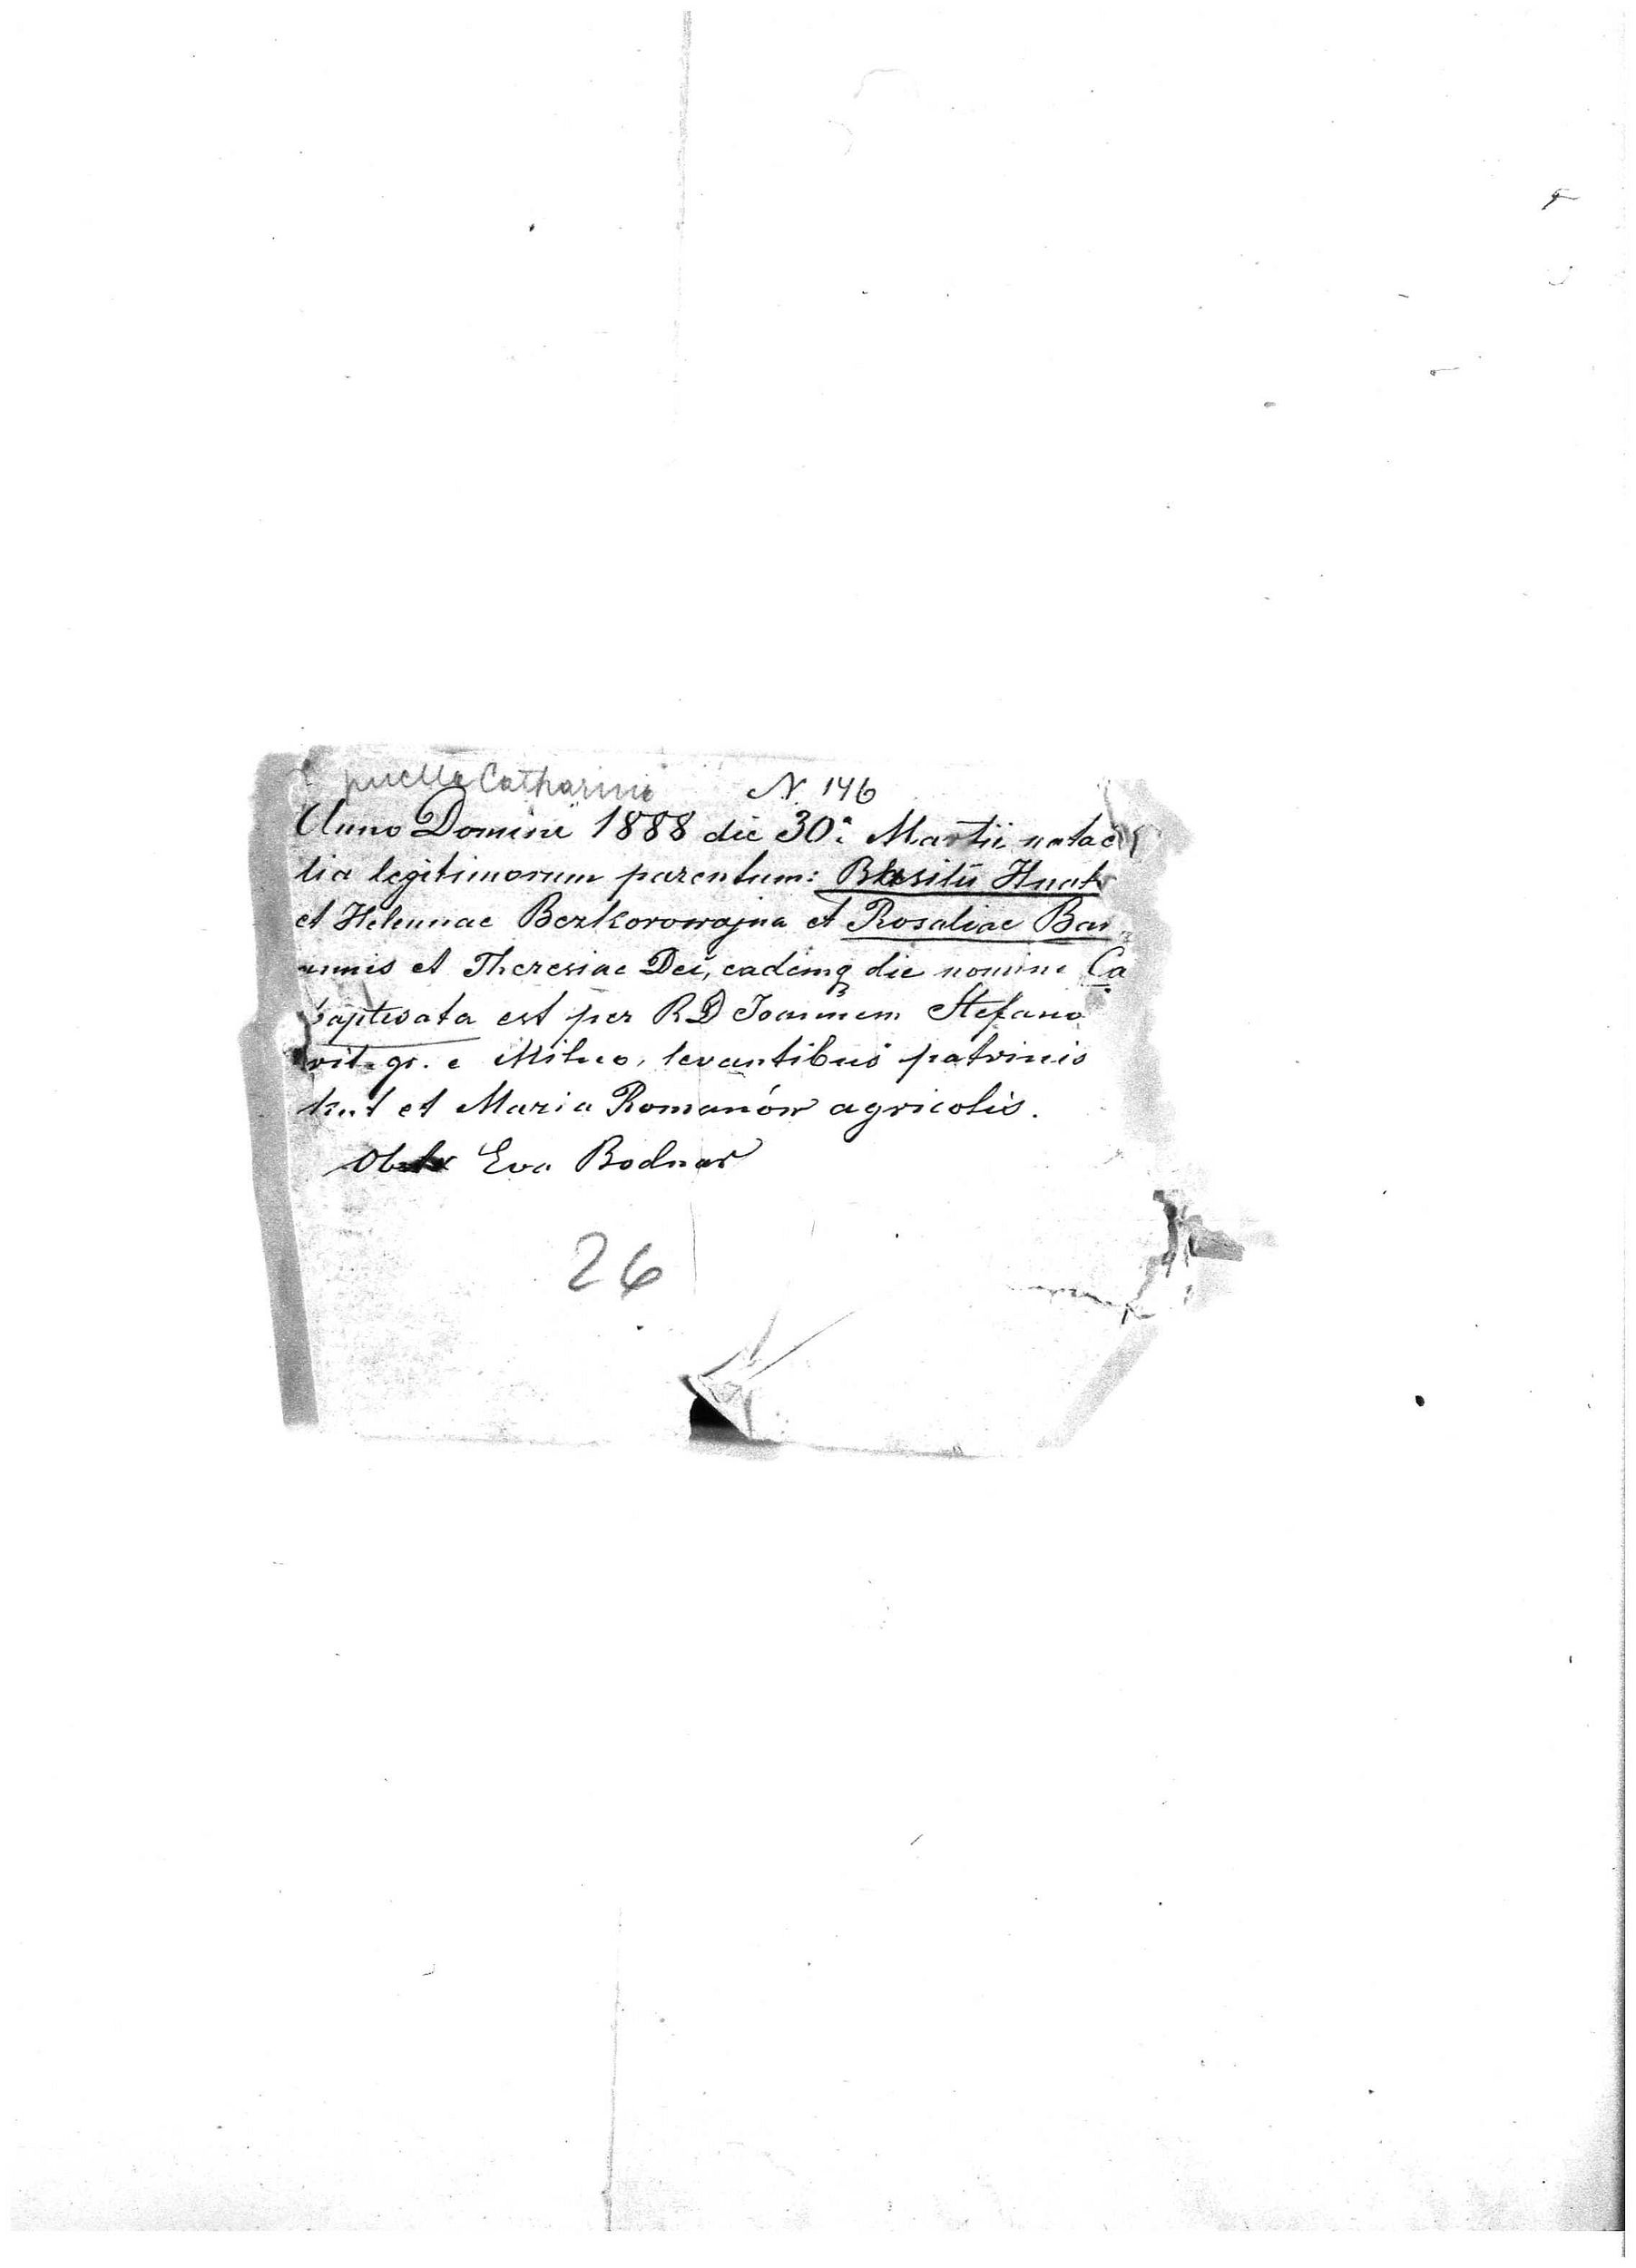 puella Catharina
N. 146
Anno Domini 1888 die 30ª Martii nata e
lia legitimorum parentum: Basilii Hnat
et Helennae Bezkorowajna et Rosaliae Bar
annis et Theresiae Dei, eademq die nomine Ca
baptisata est per RD Joannem Stefano
wit. gr. c Milno, levantibus patrinis
et Maria Romanów agricolis.
Obstx Eva Bodnar
26